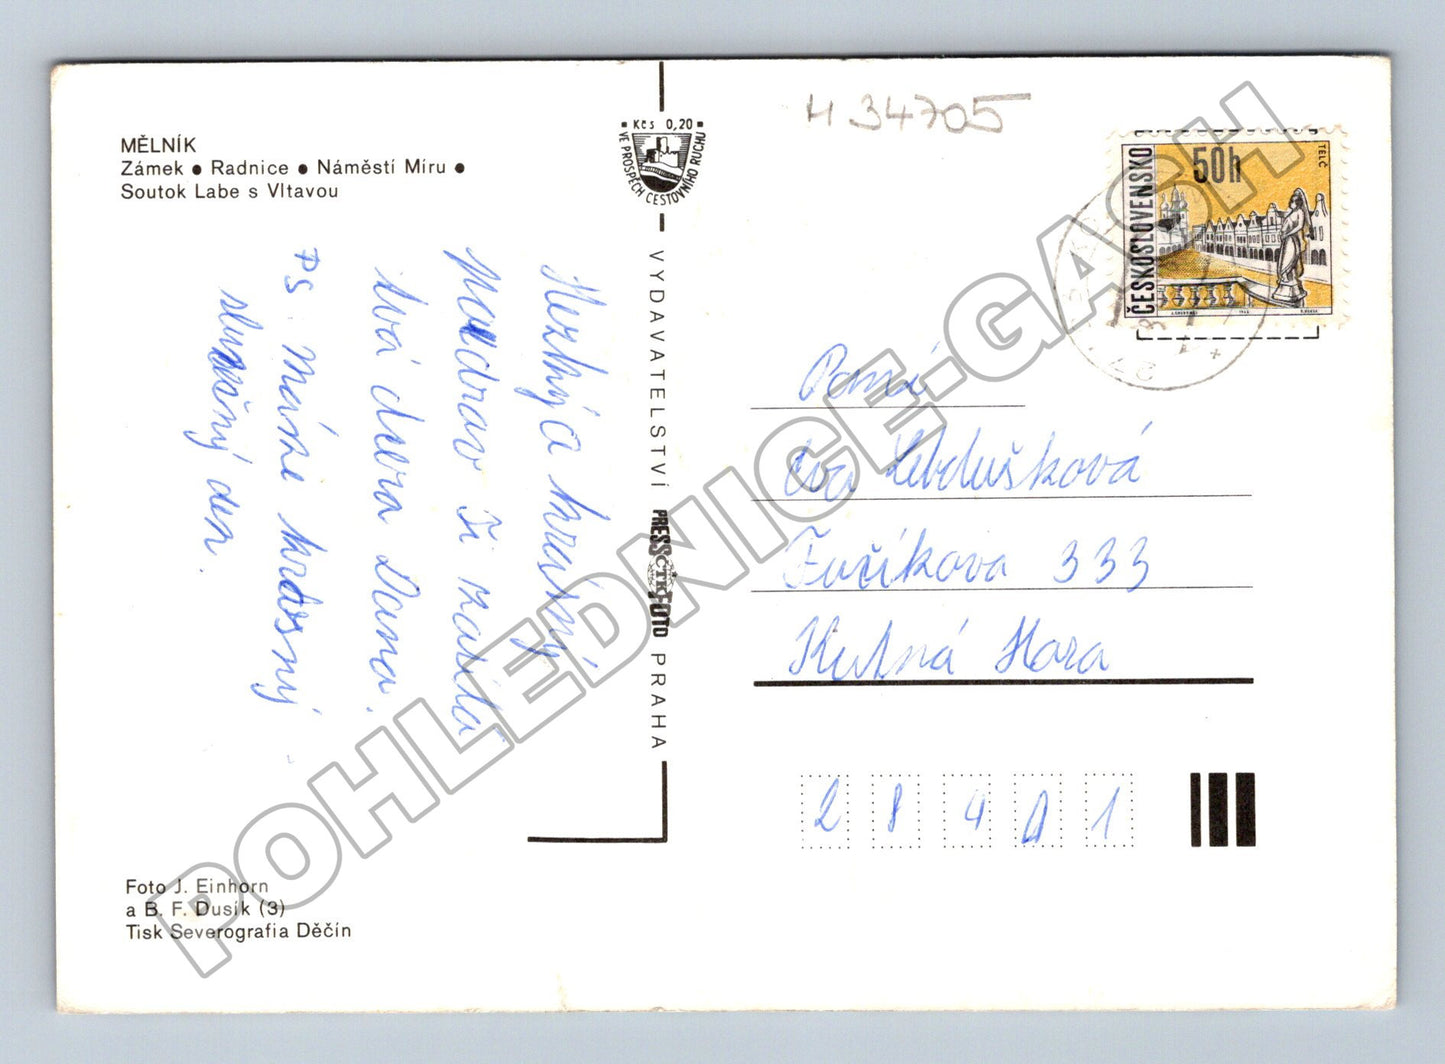 MĚLNÍK
Zámek • Radnice • Náměstí Míru •
Soutok Labe s Vltavou
Hezký a krásný
pozdrav Ti zasílá
tvá dcera Dana.
Ps Máme krásný
slunečný den
Foto J. Einhorn
a B. F. Dusík (3)
Tisk Severografia Děčín
Kčs 0,20
VE PROSPĚCH CESTOVNÍHO RUCHU
VYDAVATELSTVÍ PRESSFOTO PRAHA
ČTK
H 34705
ČESKOSLOVENSKO
50h
TELČ
Paní
Eva Lebdušková
Fučíkova 333
Kutná Hora
28401
POHLEDNICE-GASH